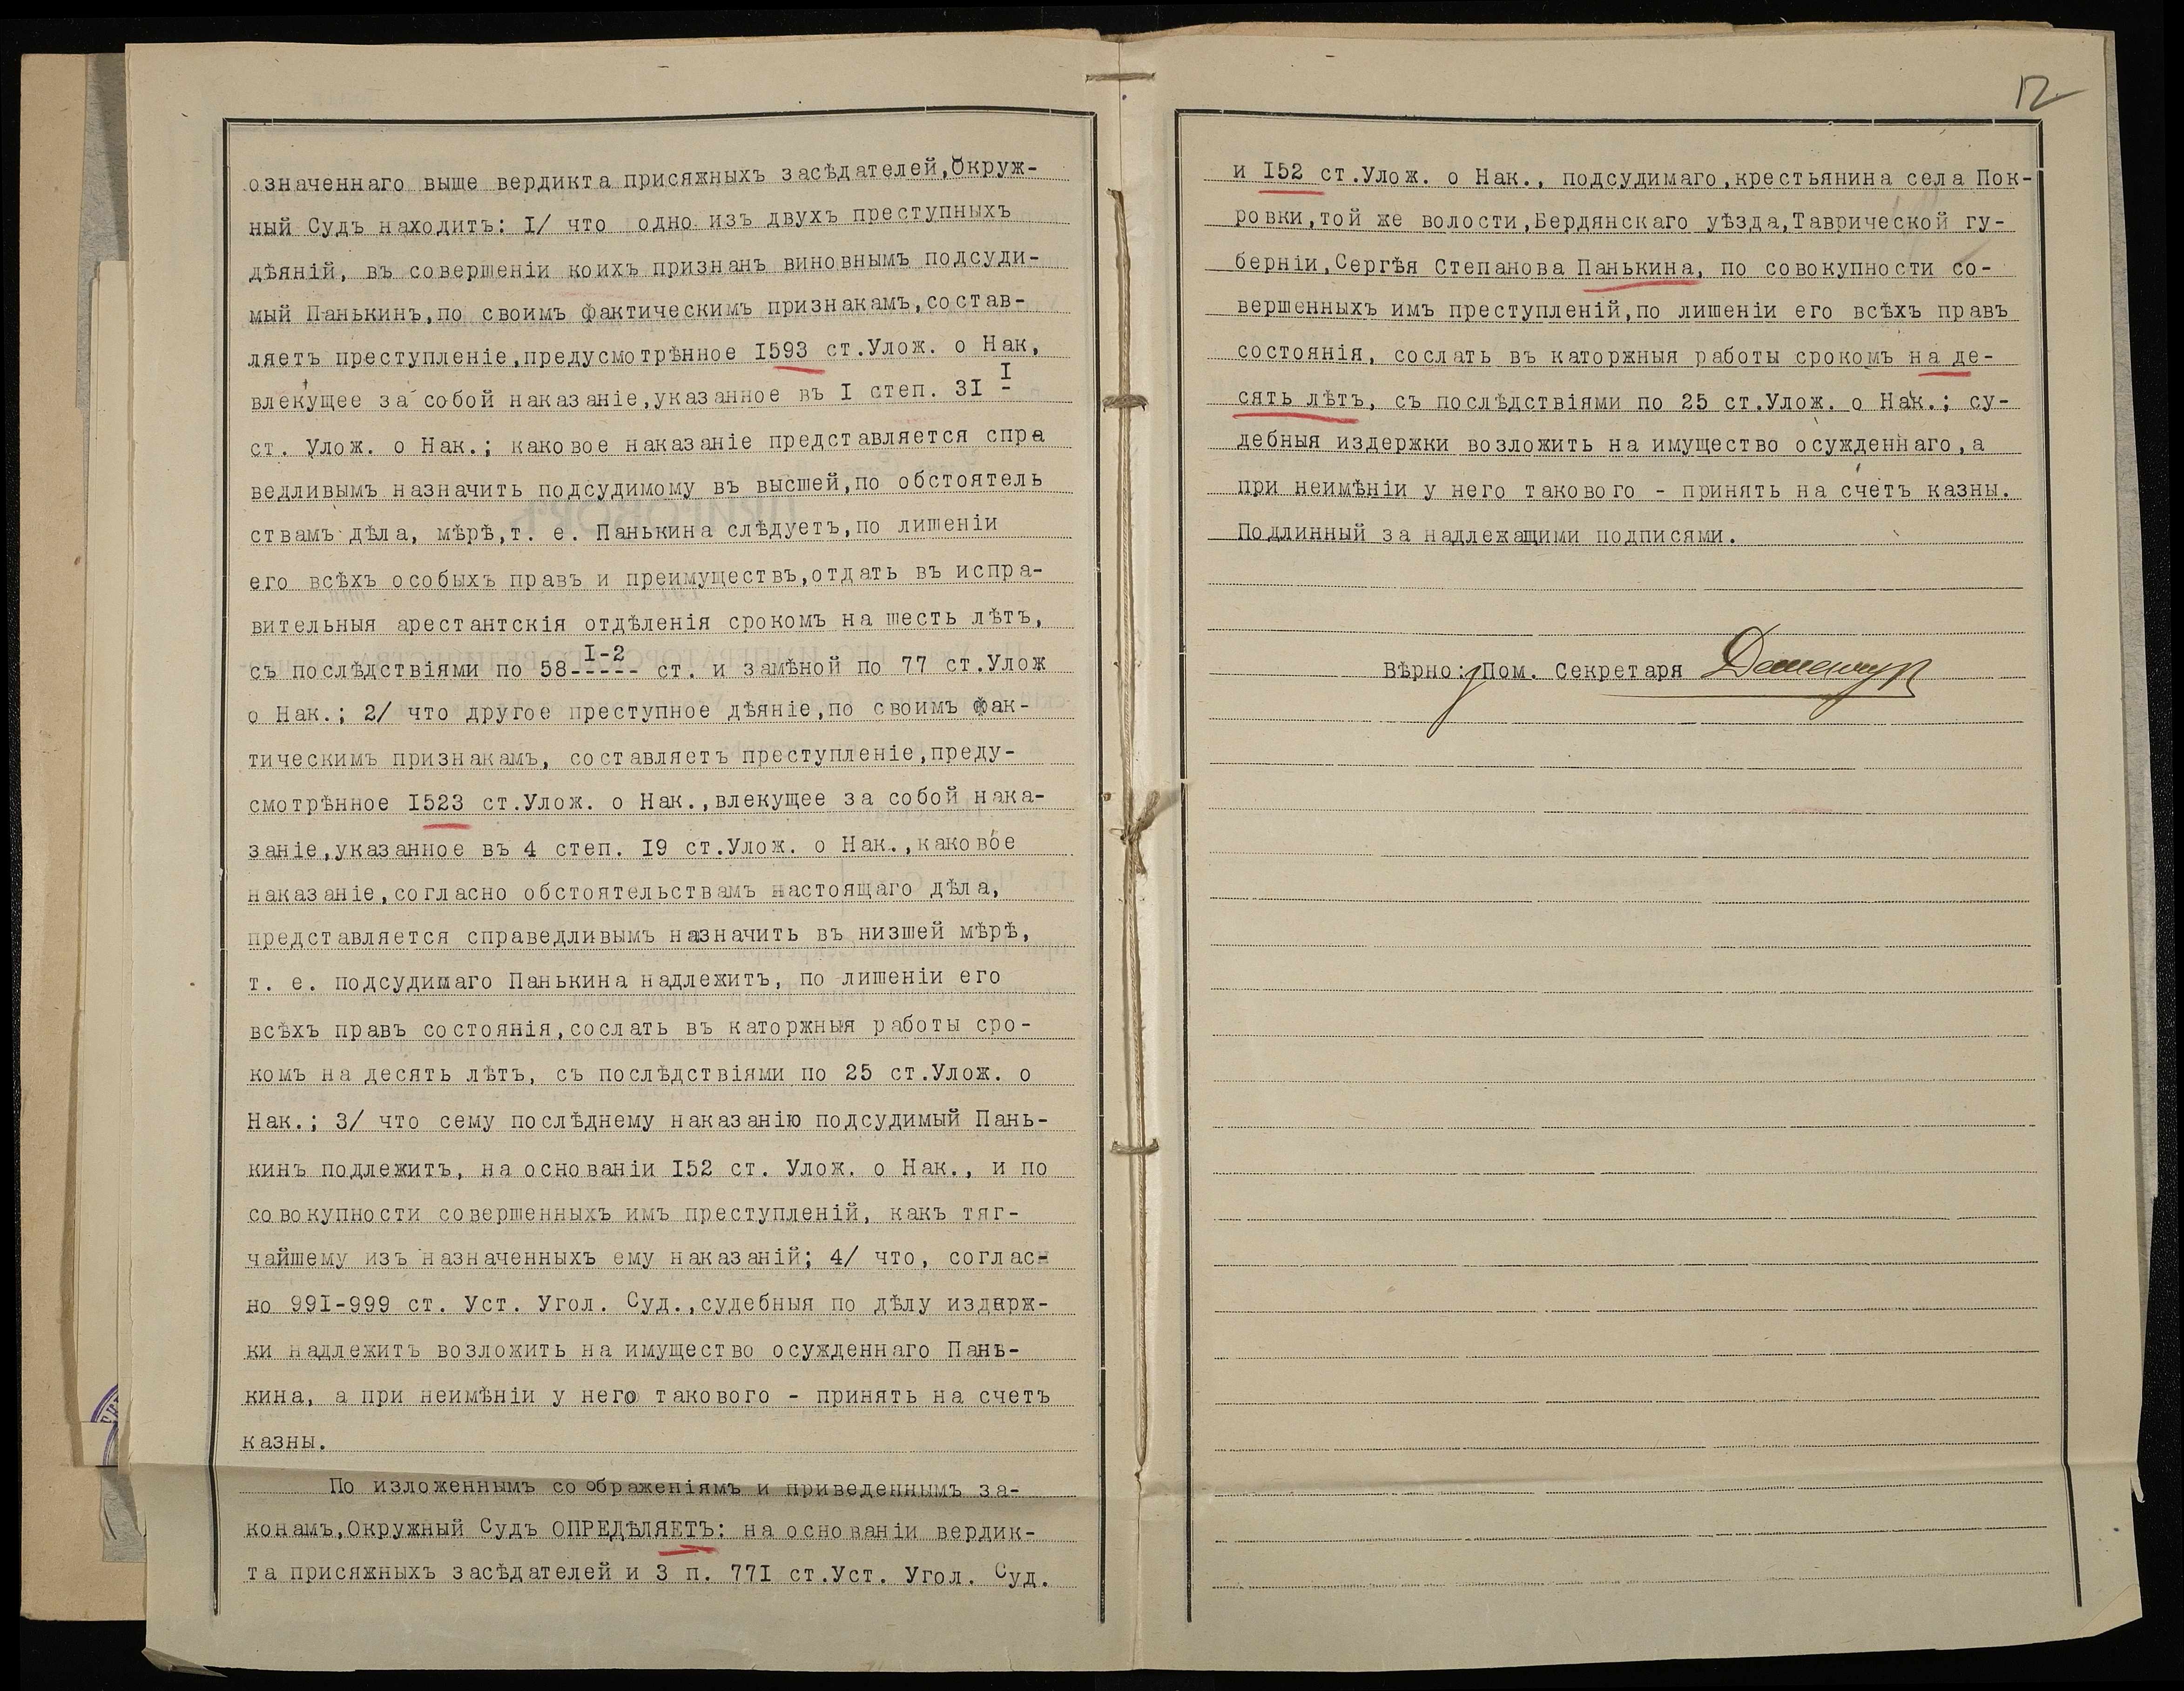 означеннаго выше вердикта присяжныхъ засѣдателей,Окруж-
ный Судъ находитъ: I/ что одно изъ двухъ преступныхъ
дѣяній, въ совершеніи коихъ признанъ виновнымъ подсуди-
мый Панькинъ,по своимъ фактическимъ признакамъ,состав-
ляетъ преступленіе,предусмотрѣнное I593 ст.Улож. о Нак,
влекущее за собой наказаніе,указанное въ I степ. 3I I
ст. Улож. о Нак.; каковое наказаніе представляется спра
ведливымъ назначить подсудимому въ высшей,по обстоятель
ствамъ дѣла, мѣрѣ,т. е. Панькина слѣдуетъ,по лишеніи
его всѣхъ особыхъ правъ и преимуществъ,отдать въ испра-
вительныя арестантскія отдѣленія срокомъ на шесть лѣтъ,
съ послѣдствіями по 58 I-2 ст. и замѣной по 77 ст.Улож
о Нак.; 2/ что другое преступное дѣяніе,по своимъ фак-
тическимъ признакамъ, составляетъ преступленіе,преду-
смотрѣнное I523 ст.Улож. о Нак.,влекущее за собой нака-
заніе,указанное въ 4 степ. I9 ст.Улож. о Нак.,каковое
наказаніе,согласно обстоятельствамъ настоящаго дѣла,
представляется справедливымъ назначить въ низшей мѣрѣ,
т. е. подсудимаго Панькина надлежитъ, по лишеніи его
всѣхъ правъ состоянія,сослать въ каторжныя работы сро-
комъ на десять лѣтъ, съ послѣдствіями по 25 ст.Улож. о
Нак.; 3/ что сему послѣднему наказанію подсудимый Пань-
кинъ подлежитъ, на основаніи I52 ст. Улож. о Нак., и по
совокупности совершенныхъ имъ преступленій, какъ тяг-
чайшему изъ назначенныхъ ему наказаній; 4/ что, соглас-
но 99I-999 ст. Уст. Угол. Суд.,судебныя по дѣлу издерж-
ки надлежитъ возложить на имущество осужденнаго Пань-
кина, а при неимѣніи у него такового - принять на счетъ
казны.
По изложеннымъ соображеніямъ и приведеннымъ за-
конамъ,Окружный Судъ ОПРЕДѢЛЯЕТЪ: на основаніи вердик-
та присяжныхъ засѣдателей и 3 п. 77I ст.Уст. Угол. Суд.
12
и I52 ст.Улож. о Нак., подсудимаго,крестьянина села Пок-
ровки,той же волости,Бердянскаго уѣзда,Таврической гу-
берніи,Сергѣя Степанова Панькина, по совокупности со-
вершенныхъ имъ преступленій,по лишеніи его всѣхъ правъ
состоянія, сослать въ каторжныя работы срокомъ на де-
сять лѣтъ, съ послѣдствіями по 25 ст.Улож. о Нак.; су-
дебныя издержки возложить на имущество осужденнаго,а
при неимѣніи у него такового - принять на счетъ казны.
Подлинный за надлежащими подписями.
Вѣрно: Пом. Секретаря